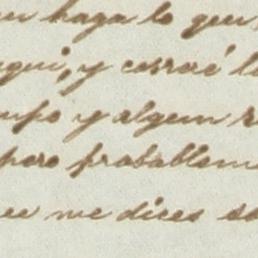 haga lo que
aqui, y cerraré l
mpo y algun r
pero probablem
me dices